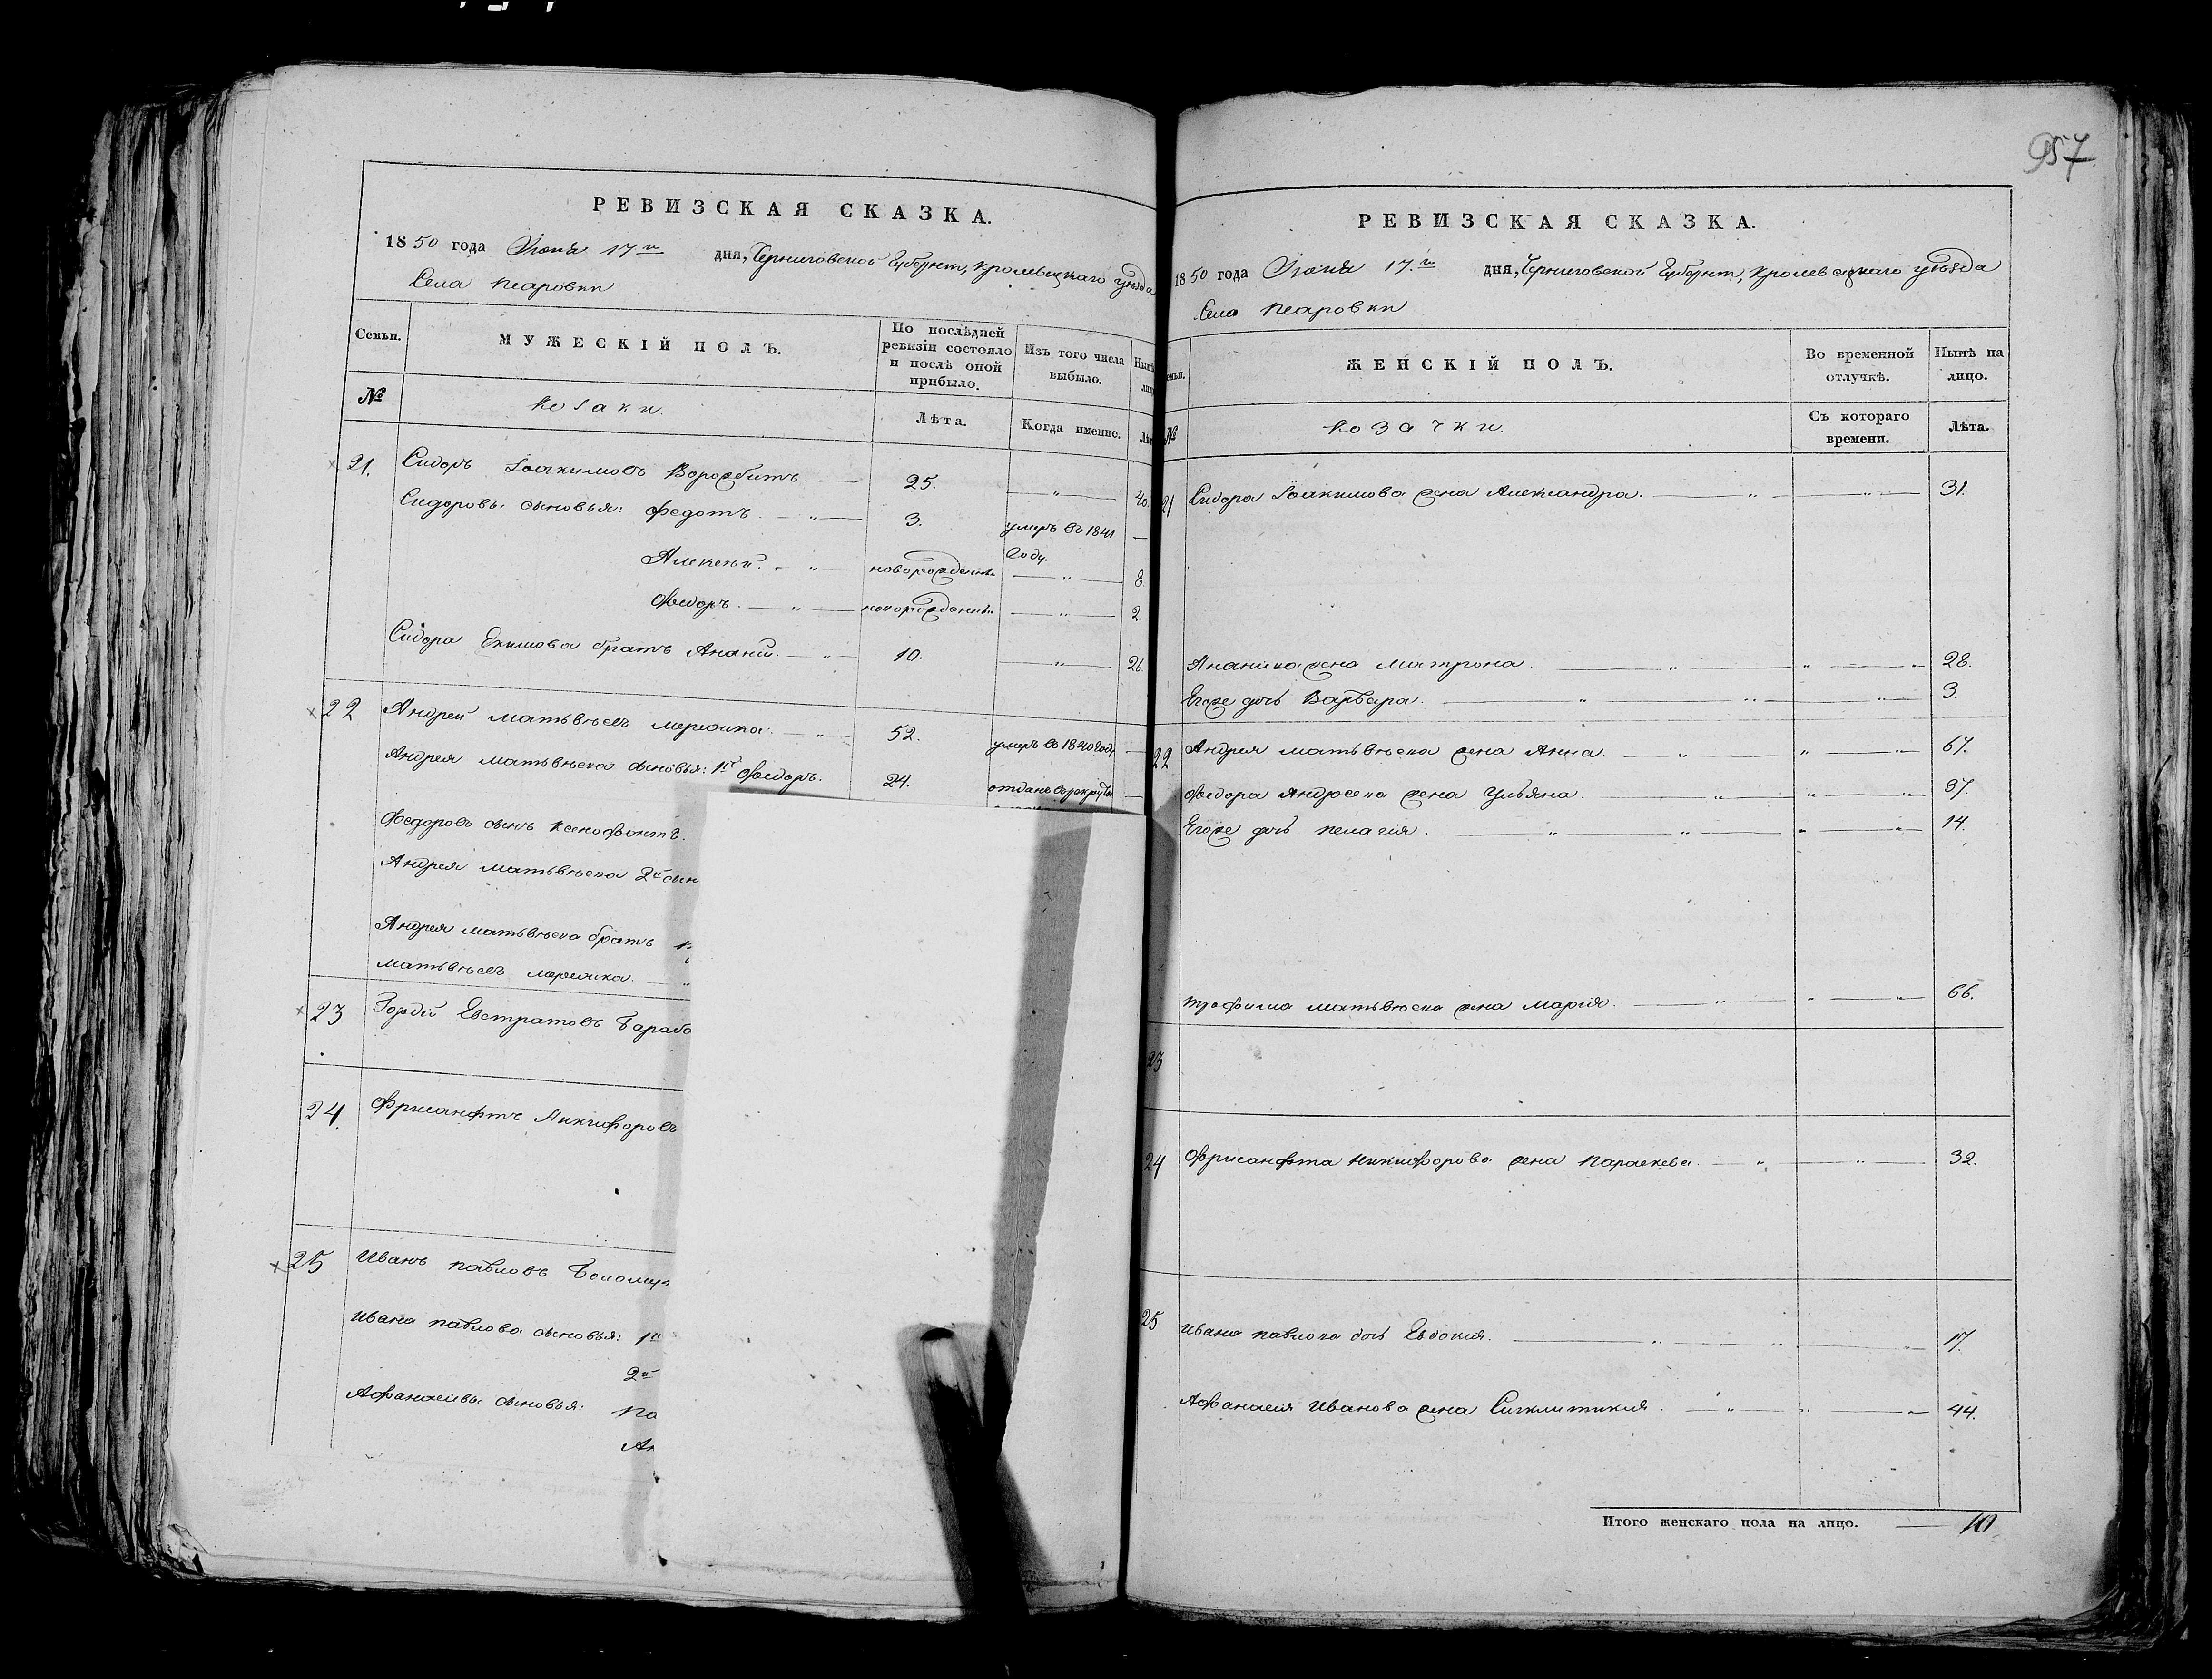 957
РЕВИЗСКАЯ СКАЗКА.
1850 года Июня 17го дня, Черниговской Губерніи, Кролевецкаго уѣзда
Села
Семьи. МУЖЕСКІЙ ПОЛЪ. По послѣдней ревизіи состояло и послѣ оной прибыло. Изъ того числа выбыло. Нынѣ
№ Козаки. Лѣта. Когда именно.
21. Сидоръ Іоакимовъ Ворожбитъ. 25. 40.
Сидоровы сыновья: Федотъ. 3. умеръ въ 1841 году.
Алексѣй. новорожденный 8.
Федоръ. новорожденный 2.
Сидора Екимова братъ Ананій. 10. 26.
22 Андрей Матьвѣевъ 52. умеръ въ 1840 году
Андрея Матьвѣева сыновья: 1й Федоръ. 24. отданъ въ рекруты
Федоровъ сынъ Ксенофонтъ.
Андрея Матьвѣева 2й сын
Андрея Матьвѣева братъ
Матьвѣевъ
23 Гордій Евстратовъ
24. Фрисанфтъ Никифоровъ
25 Иванъ Павловъ
Ивана Павлова сыновья: 1й
2й
Афанасіевы сыновья: Па
Ан
РЕВИЗСКАЯ СКАЗКА.
1850 года Июня 17.го дня, Черниговской Губерніи, Кролевецкаго уѣзда
Села
ЖЕНСКІЙ ПОЛЪ. Во временной отлучкѣ. Нынѣ на лицо.
№ Козачки. Съ котораго времени. Лѣта.
21 Сидора Іоакимова жена Александра. 31.
Ананія жена Матрона. 28.
Егоже дочь Варвара. 3.
22 Андрея Матьвѣева жена Анна. 67.
Федора Андреева жена Ульяна. 37.
Егоже дочь Пелагія. 14.
Трофима Матьвѣева жена Марія. 66.
23
24 Фрисанфта Никифорова жена Параскева. 32.
25 Ивана Павлова дочь Евдокія. 17.
Афанасія Иванова жена Сигклитикія. 44.
Итого женскаго пола на лицо. 10